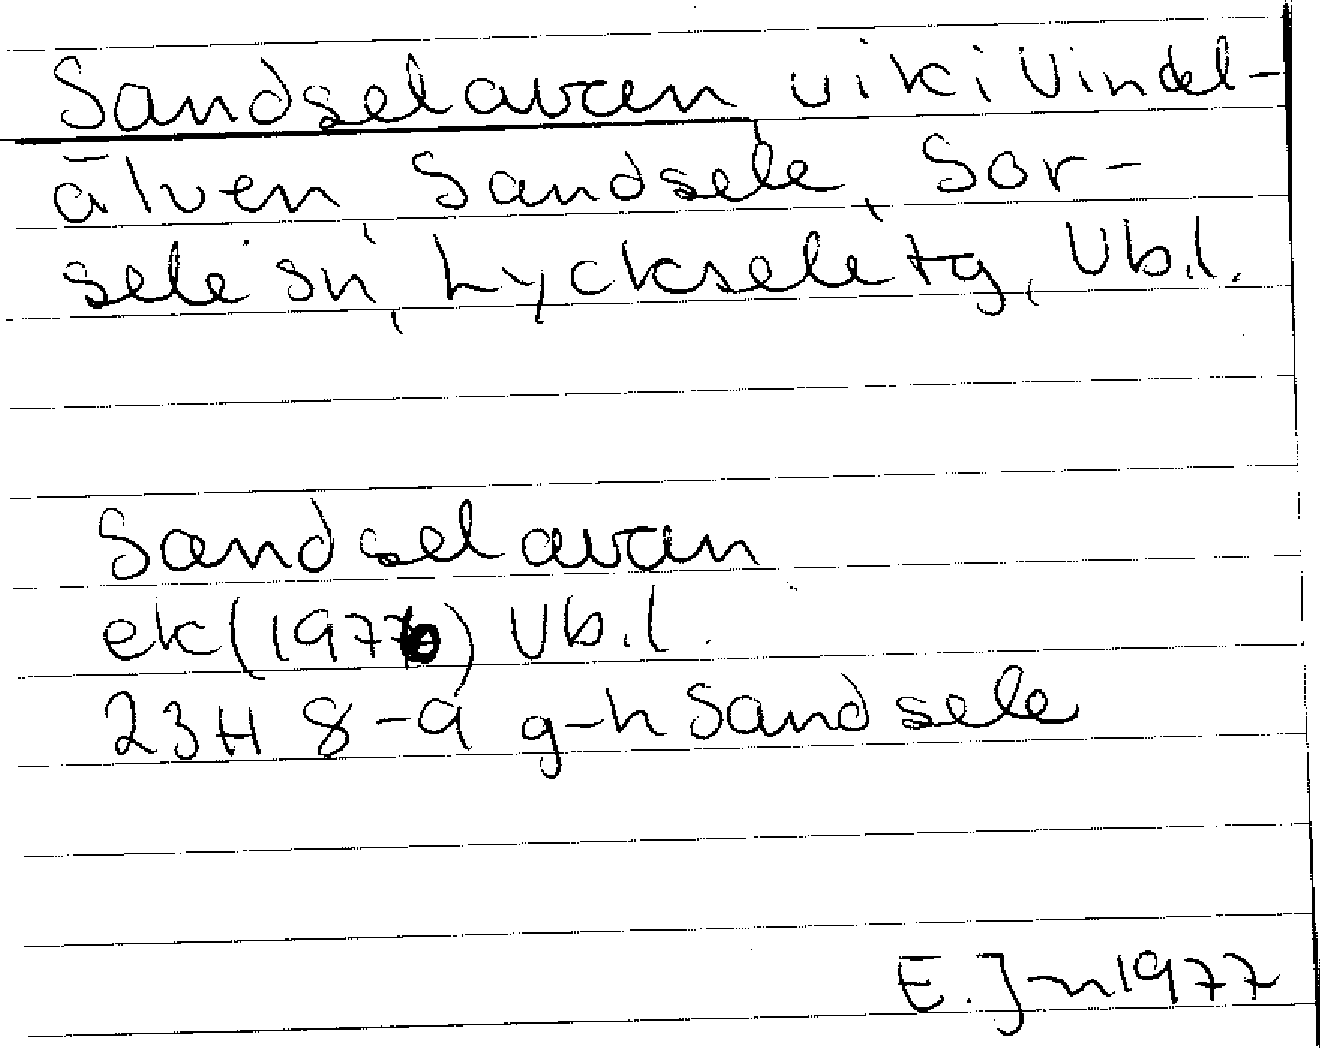 Sandselavan vik i Vindel-
älven Sandsele, Sor-
sele sn, Lycksele tg, Vb.l.
Sandselavan
ek (1976) Vb.l.
23H 8-9 g-h Sandsele
E. J-n 1977